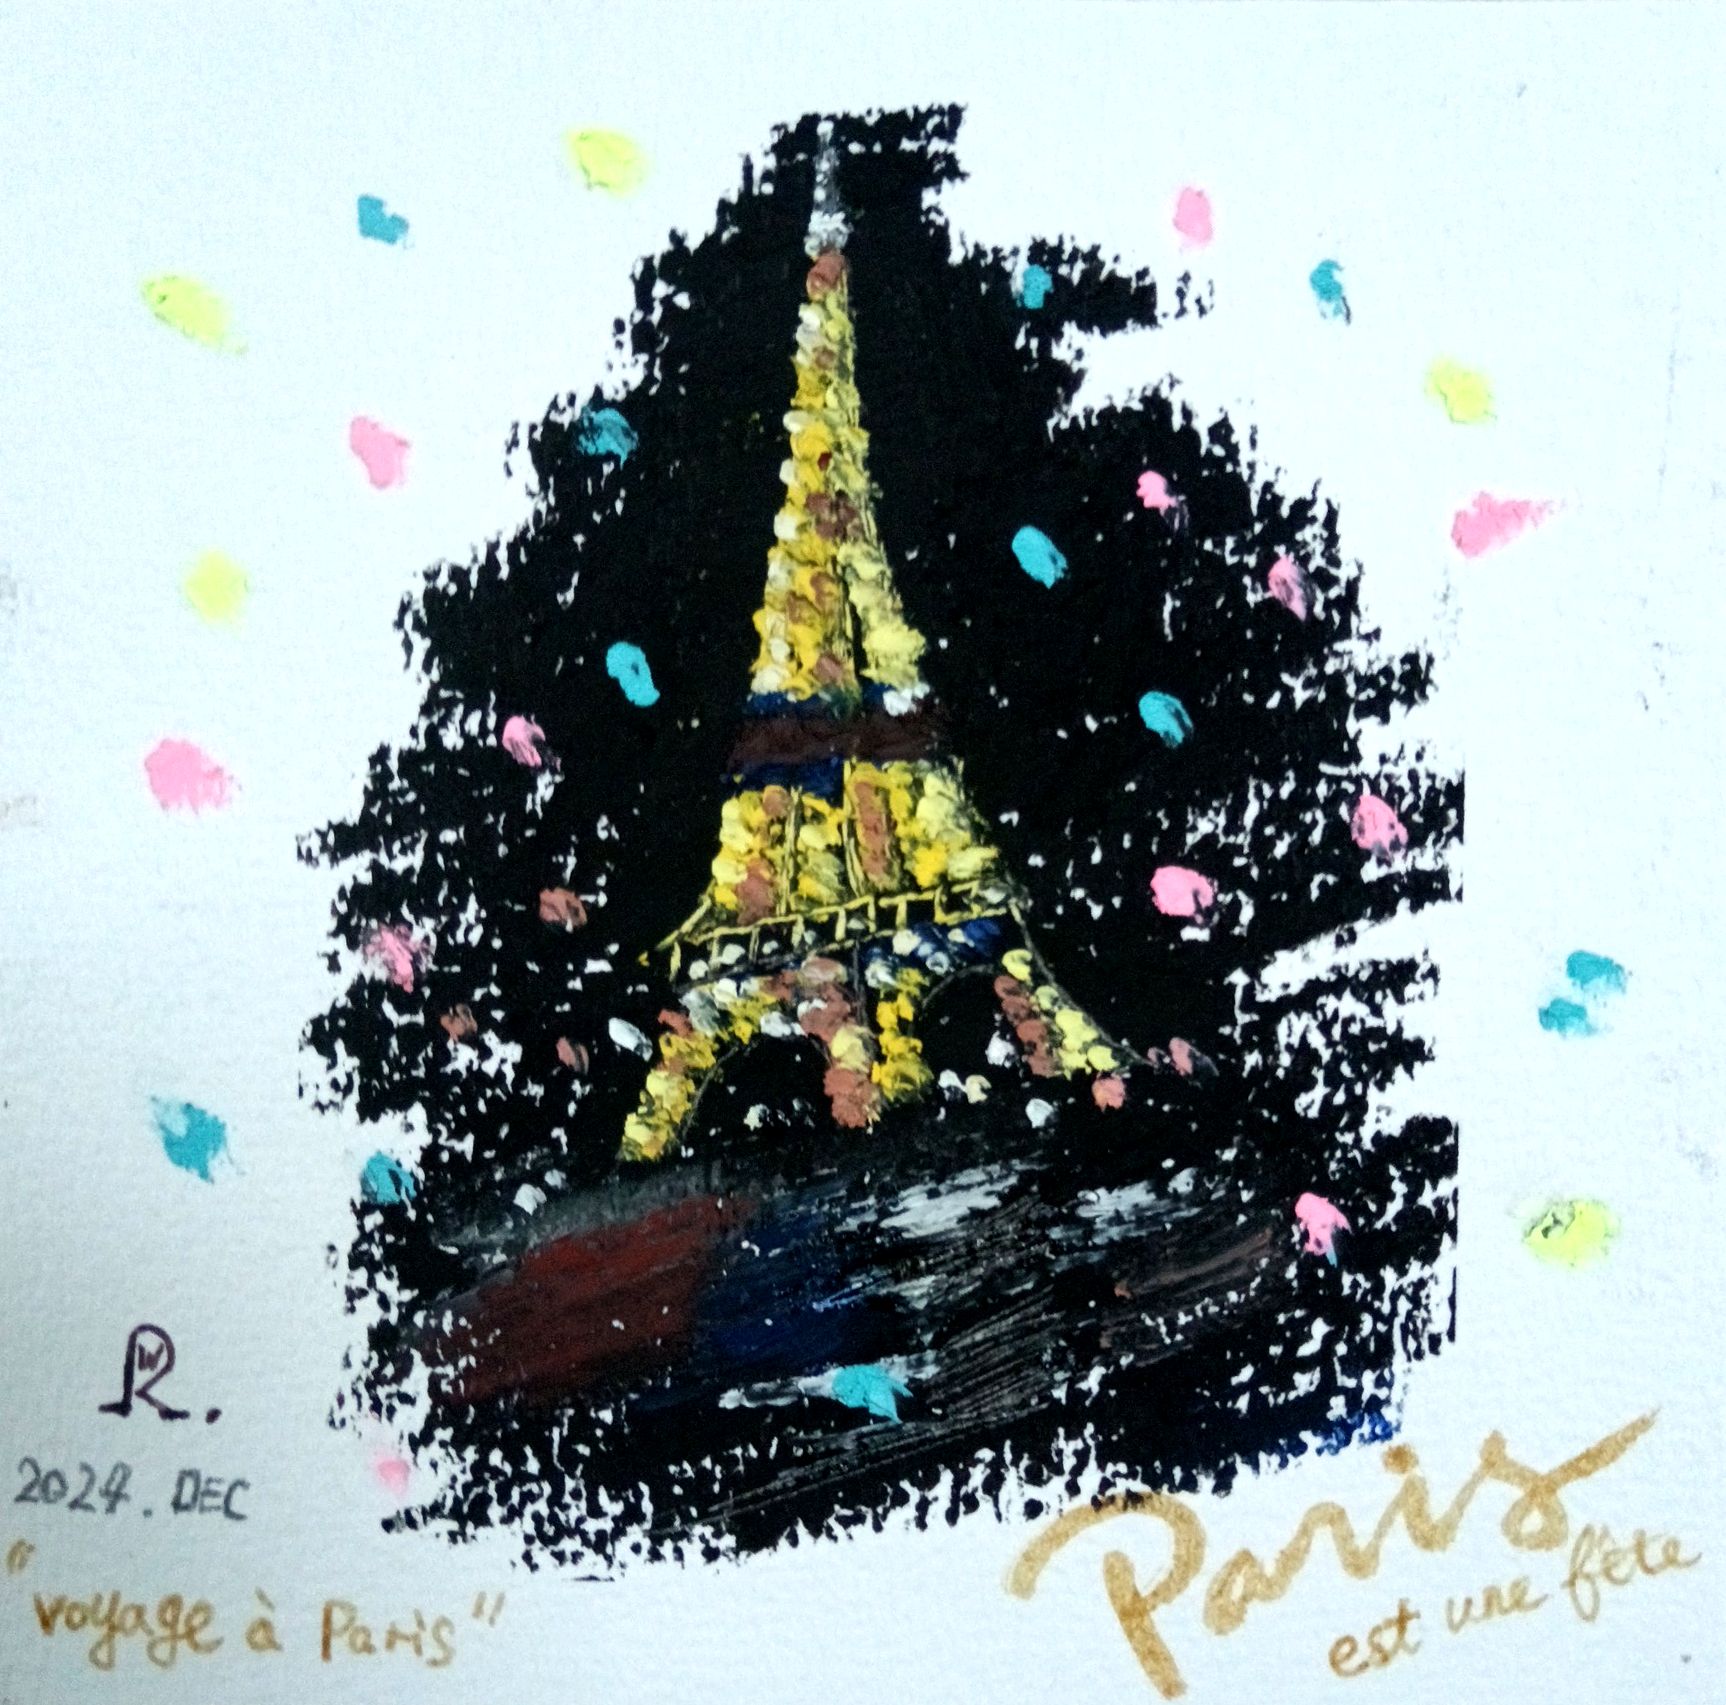 R.
2024. DEC
"voyage à Paris"
Paris
est une fête